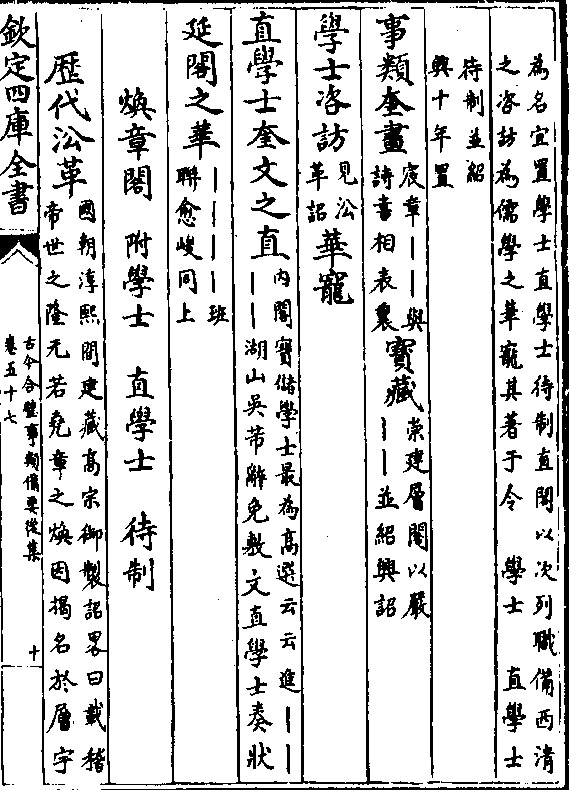 為名宜置學士直學士待制直閣以次列職備西清
之咨訪為儒學之華寵其著于令　學士　直學士
待制並紹
興十年置
事類奎畫
宸章｜｜與
詩書相表裏
寶藏
崇建層閣以嚴
｜｜並紹興詔
學士咨訪
見沿
革詔
華寵
直學士奎文之直
内閣寶儲學士最為高選云云進｜｜
｜｜湖山吳芾辭免敷文直學士奏狀
延閣之華
｜｜｜｜班
聯愈峻同上
煥章閣　附學士　直學士　待制
歴代沿革
國朝淳熙間建藏高宗御製詔畧曰載稽
帝世之隆元若堯章之煥因揭名於層宇
欽定四庫全書
古今合璧事類備要後集
卷五十七
十